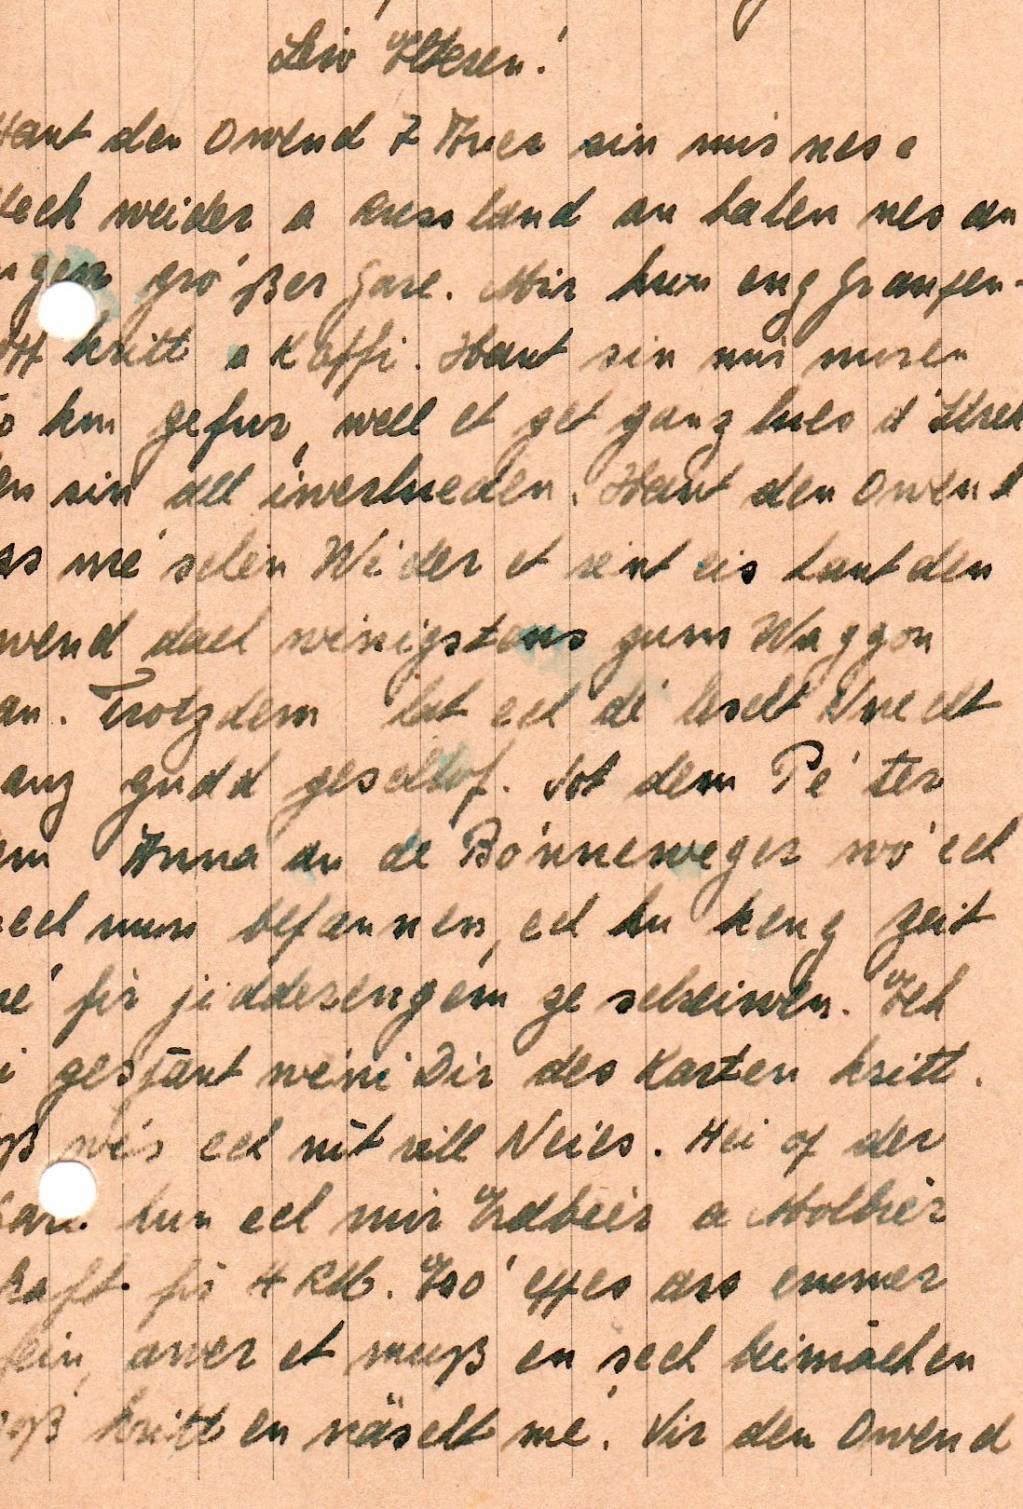 Léiw Eltesen!
Haut den Owend 7 Auer sin mir nes a
weider a Russland an halen nes an
gro'ßer Gare. Mir hun eng Graupen-
kritt a Kaffi. Haut sin mir muren
hm gefur, well et get ganz lues d'Strek
en sin all iwerlueden. Haut den Owend
as mé schéin Wieder et rent eis haut den
wend dach winigstens zum Waggon
an. Trotzdem hat ech dé lescht Nuecht
anz gudd geschlof. Sot dem Pé'ter
em Anna an de Bo'nneweger wo' ech
ech mun befannen, ech hu keng Zeit
mé' fir jidderengem ze schreiwen. Ech
i gespant wéini Dir des Karten kritt.
oß wés ech nit vill Neies. Hei of der
Gare hun ech mir Erdbéer a Molbier
kaft fir 4 RM. Eso' eppes ass emmer
fein, awer et muß en sech beimachen
soß kritt en näischt mé. Vir den Owend